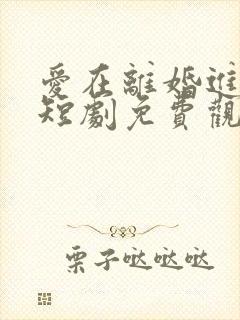 愛在離婚進
短劇免費觀
栗子噠噠噠